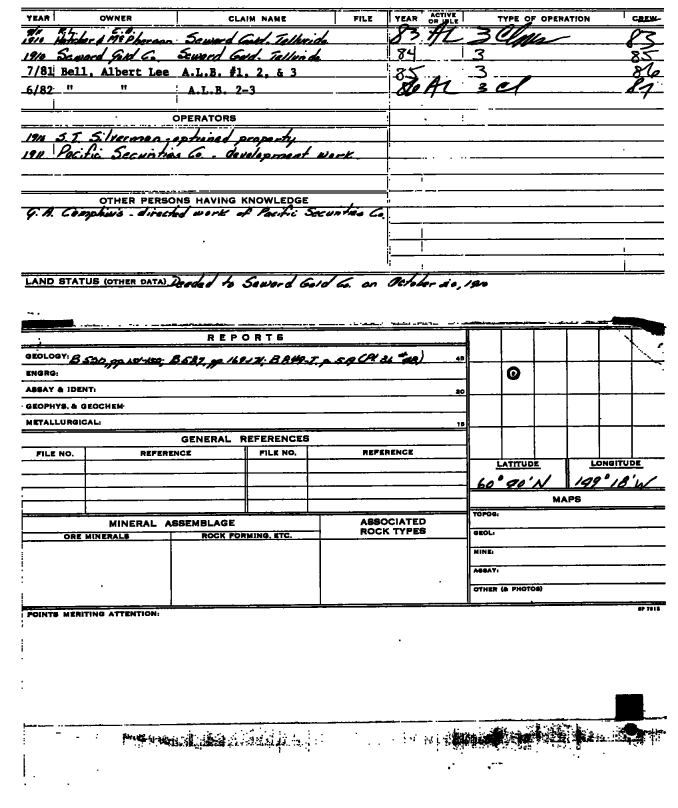 YEAR OWNER CLAIM NAME FILE YEAR ACTIVE OR IDLE TYPE OF OPERATION CREW
1910 & McPherson Seward Gold. Telluride 83 AL 3 Clms 83
1910 Seward Gold Co. Seward Gold. Telluride 84 3 85
7/81 Bell, Albert Lee A.L.B. #1, 2, & 3 85 3 86
6/82 " " A.L.B. 2-3 86 AL 3 Cl 87
OPERATORS
1910 S.T. Silverman - optioned property
1911 Pacific Securities Co. - development work
OTHER PERSONS HAVING KNOWLEDGE
directed work of Pacific Securities Co.
LAND STATUS (OTHER DATA) Deeded to Seward Gold Co. on October 20, 1910
REPORTS
GEOLOGY: B 520, pp B 587, pp 169-171; B 849-I, p.
ENGRG:
ASSAY & IDENT: 20
GEOPHYS. & GEOCHEM
METALLURGICAL: 15
GENERAL REFERENCES
FILE NO. REFERENCE FILE NO. REFERENCE
LATITUDE LONGITUDE
60° N 149° 18' W
MAPS
TOPOG:
GEOL:
MINE:
ASSAY:
OTHER (& PHOTOS)
MINERAL ASSEMBLAGE ASSOCIATED ROCK TYPES
ORE MINERALS ROCK FORMING, ETC.
POINTS MERITING ATTENTION: